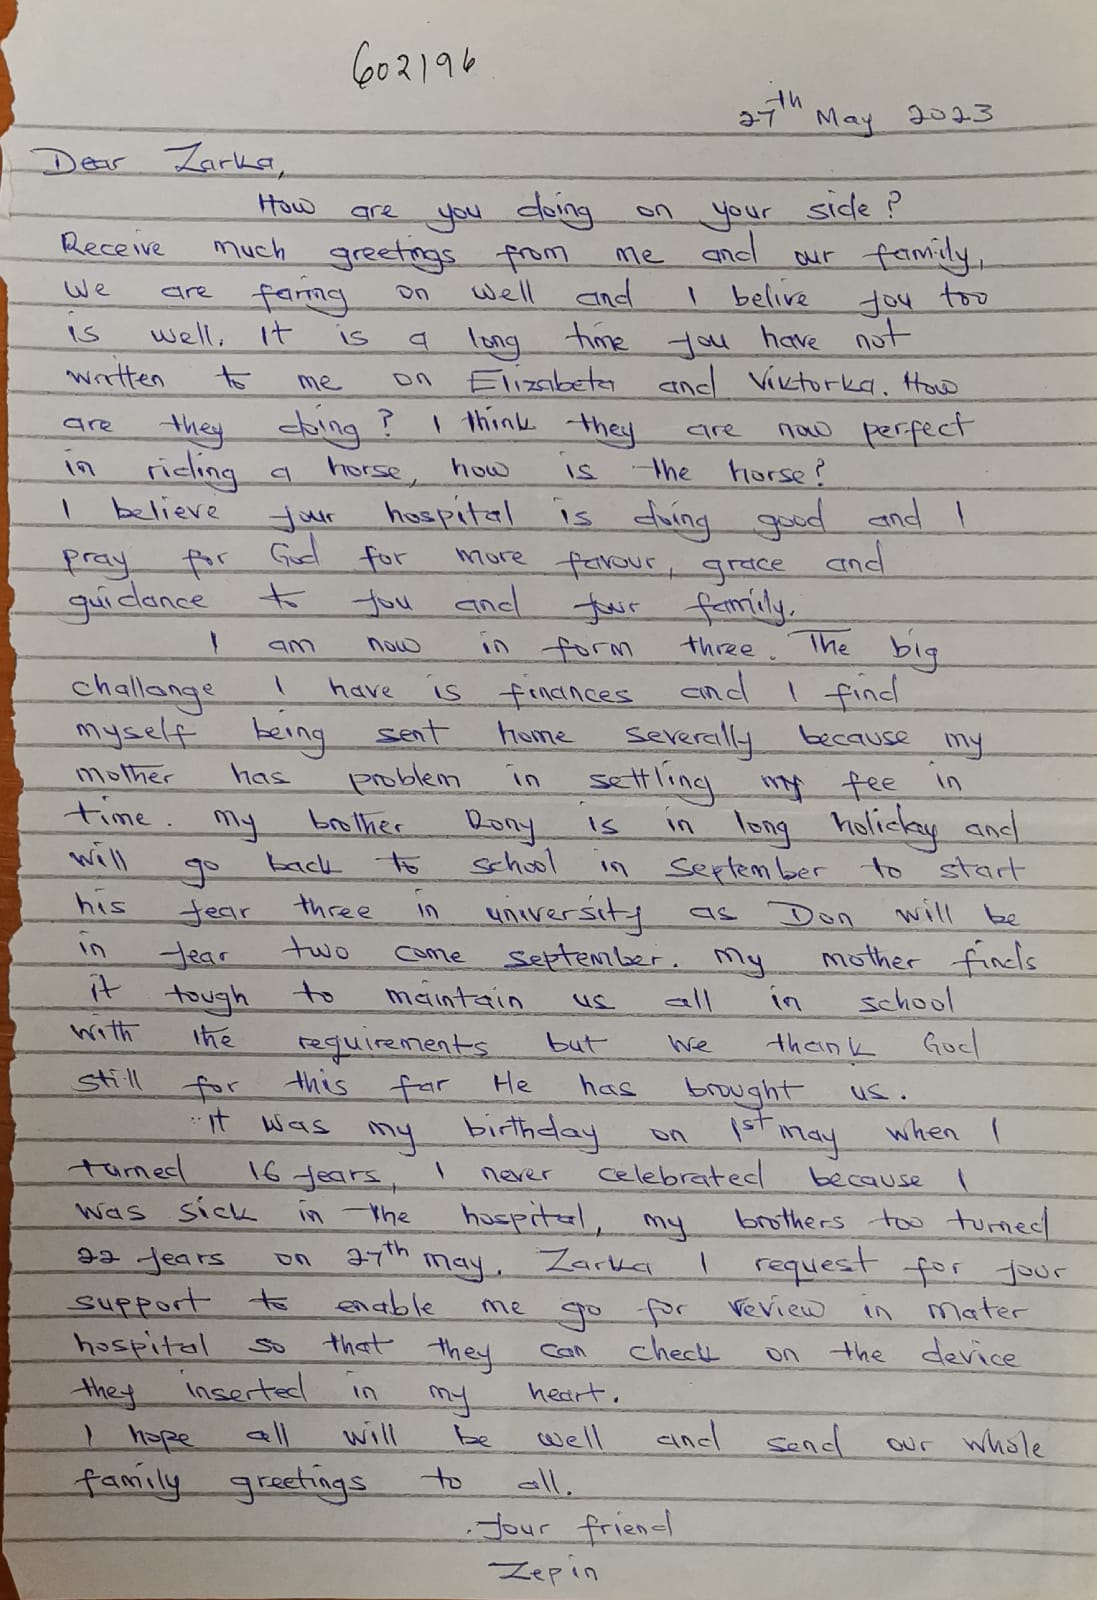 602196
27th May 2023
Dear Zarka,
How are you doing on your side?
Receive much greetings from me and our family,
We are faring on well and I belive you too
is well. It is a long time you have not
written to me on Elizabeta and Viktorka. How
are they doing? I think they are now perfect
in riding a horse, how is the horse?
I believe your hospital is doing good and I
pray for God for more favour, grace and
guidance to you and your family.
I am now in form three. The big
challange I have is finances and I find
myself being sent home severally because my
mother has problem in settling my fee in
time. My brother Rony is in long holiday and
will go back to school in September to start
his year three in university as Don will be
in year two come september. My mother finds
it tough to maintain us all in school
with the requirements but we thank God
still for this far He has brought us.
It was my birthday on 1st may when I
turned 16 years, I never celebrated because I
was sick in the hospital, my brothers too turned
22 years on 27th may. Zarka I request for your
support to enable me go for review in mater
hospital so that they can check on the device
they inserted in my heart.
I hope all will be well and send our whole
family greetings to all.
Your friend
Zepin